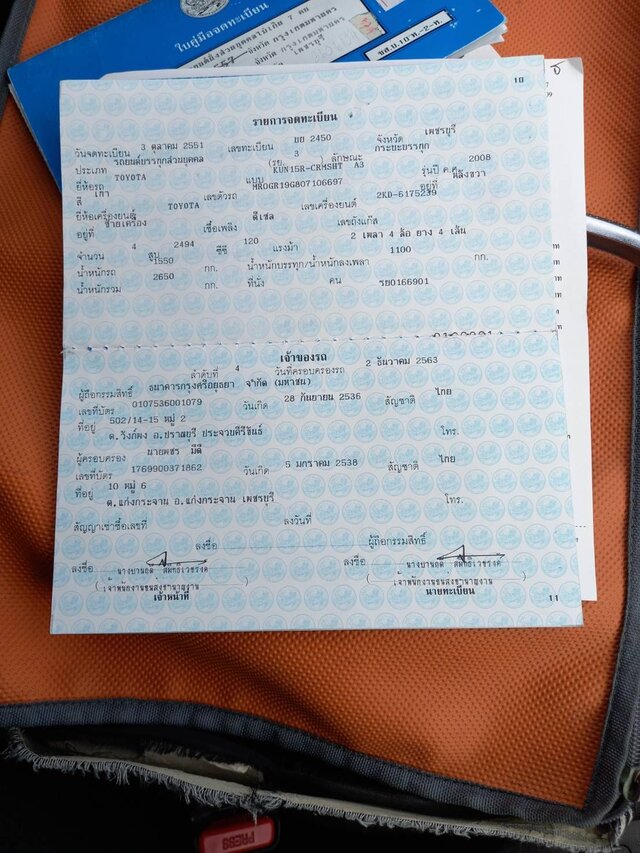 ใบคู่มือจดทะเบียน
10
รายการจดทะเบียน
วันจดทะเบียน 3 ตุลาคม 2551 เลขทะเบียน ยย 2450 จังหวัด เพชรบุรี
ประเภท รถยนต์บรรทุกส่วนบุคคล (รย. 3 ) ลักษณะ กระบะบรรทุก
ยี่ห้อรถ TOYOTA แบบ KUN15R-CRMSHT A3 รุ่นปี ค.ศ. 2008
สี เทา เลขตัวรถ MR0GR19G807106697 อยู่ที่ หลังขวา
ยี่ห้อเครื่องยนต์ TOYOTA เลขเครื่องยนต์ 2KD-6175239
อยู่ที่ ซ้ายเครื่อง เชื้อเพลิง ดีเซล เลขถังแก๊ส
จำนวน 4 สูบ 2494 ซีซี 120 แรงม้า 2 เพลา 4 ล้อ ยาง 4 เส้น
น้ำหนักรถ 1550 กก. น้ำหนักบรรทุก/น้ำหนักลงเพลา 1100 กก.
น้ำหนักรวม 2650 กก. ที่นั่ง คน รย0166901
เจ้าของรถ
ลำดับที่ 4 วันที่ครอบครองรถ 2 ธันวาคม 2563
ผู้ถือกรรมสิทธิ์ ธนาคารกรุงศรีอยุธยา จำกัด (มหาชน)
เลขที่บัตร 0107536001079 วันเกิด 28 กันยายน 2536 สัญชาติ ไทย
ที่อยู่ 502/14-15 หมู่ 2
ต.วังก์พง อ.ปราณบุรี ประจวบคีรีขันธ์ โทร.
ผู้ครอบครอง นายพชร มีดี
เลขที่บัตร 1769900371862 วันเกิด 5 มกราคม 2538 สัญชาติ ไทย
ที่อยู่ 10 หมู่ 6
ต.แก่งกระจาน อ.แก่งกระจาน เพชรบุรี โทร.
สัญญาเช่าซื้อเลขที่ ลงวันที่
ลงชื่อ ผู้ถือกรรมสิทธิ์
ลงชื่อ ลงชื่อ
เจ้าหน้าที่ นายทะเบียน
11
PRESS